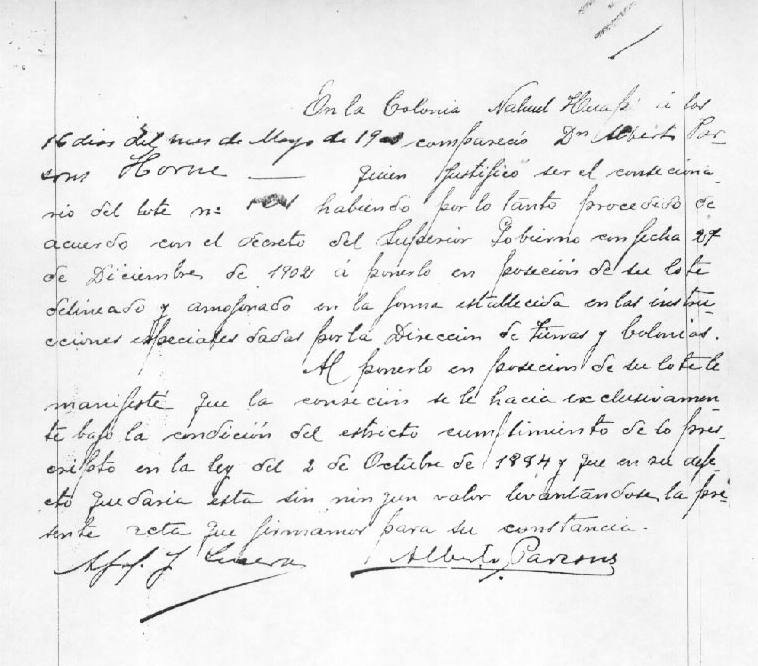 En la Colonia Nahuel Huapí á los
16 dias del mes de Mayo de 190 compareció Dn Alberto Par-
sons Horne — quien justificó ser el conseciona
rio del lote nº habiendo por lo tanto procedido de
acuerdo con el decreto del Superior Gobierno con fecha 27
de Diciembre de 1902 á ponerlo en poseción de su lote
delineado y amojonado en la forma establecida en las instru-
cciones especiales dadas por la Direccion de Tierras y Colonias.
Al ponerlo en poseción de su lote le
manifesté que la conseción se le hacia exclusivamen
te bajo la condición del estricto cumplimiento de lo pres-
cripto en la ley del 2 de Octubre de 1884 y que en su defe-
cto quedaria esta sin ningun valor levantándose la pre-
sente acta que firmamos para su constancia.
Alberto Parsons